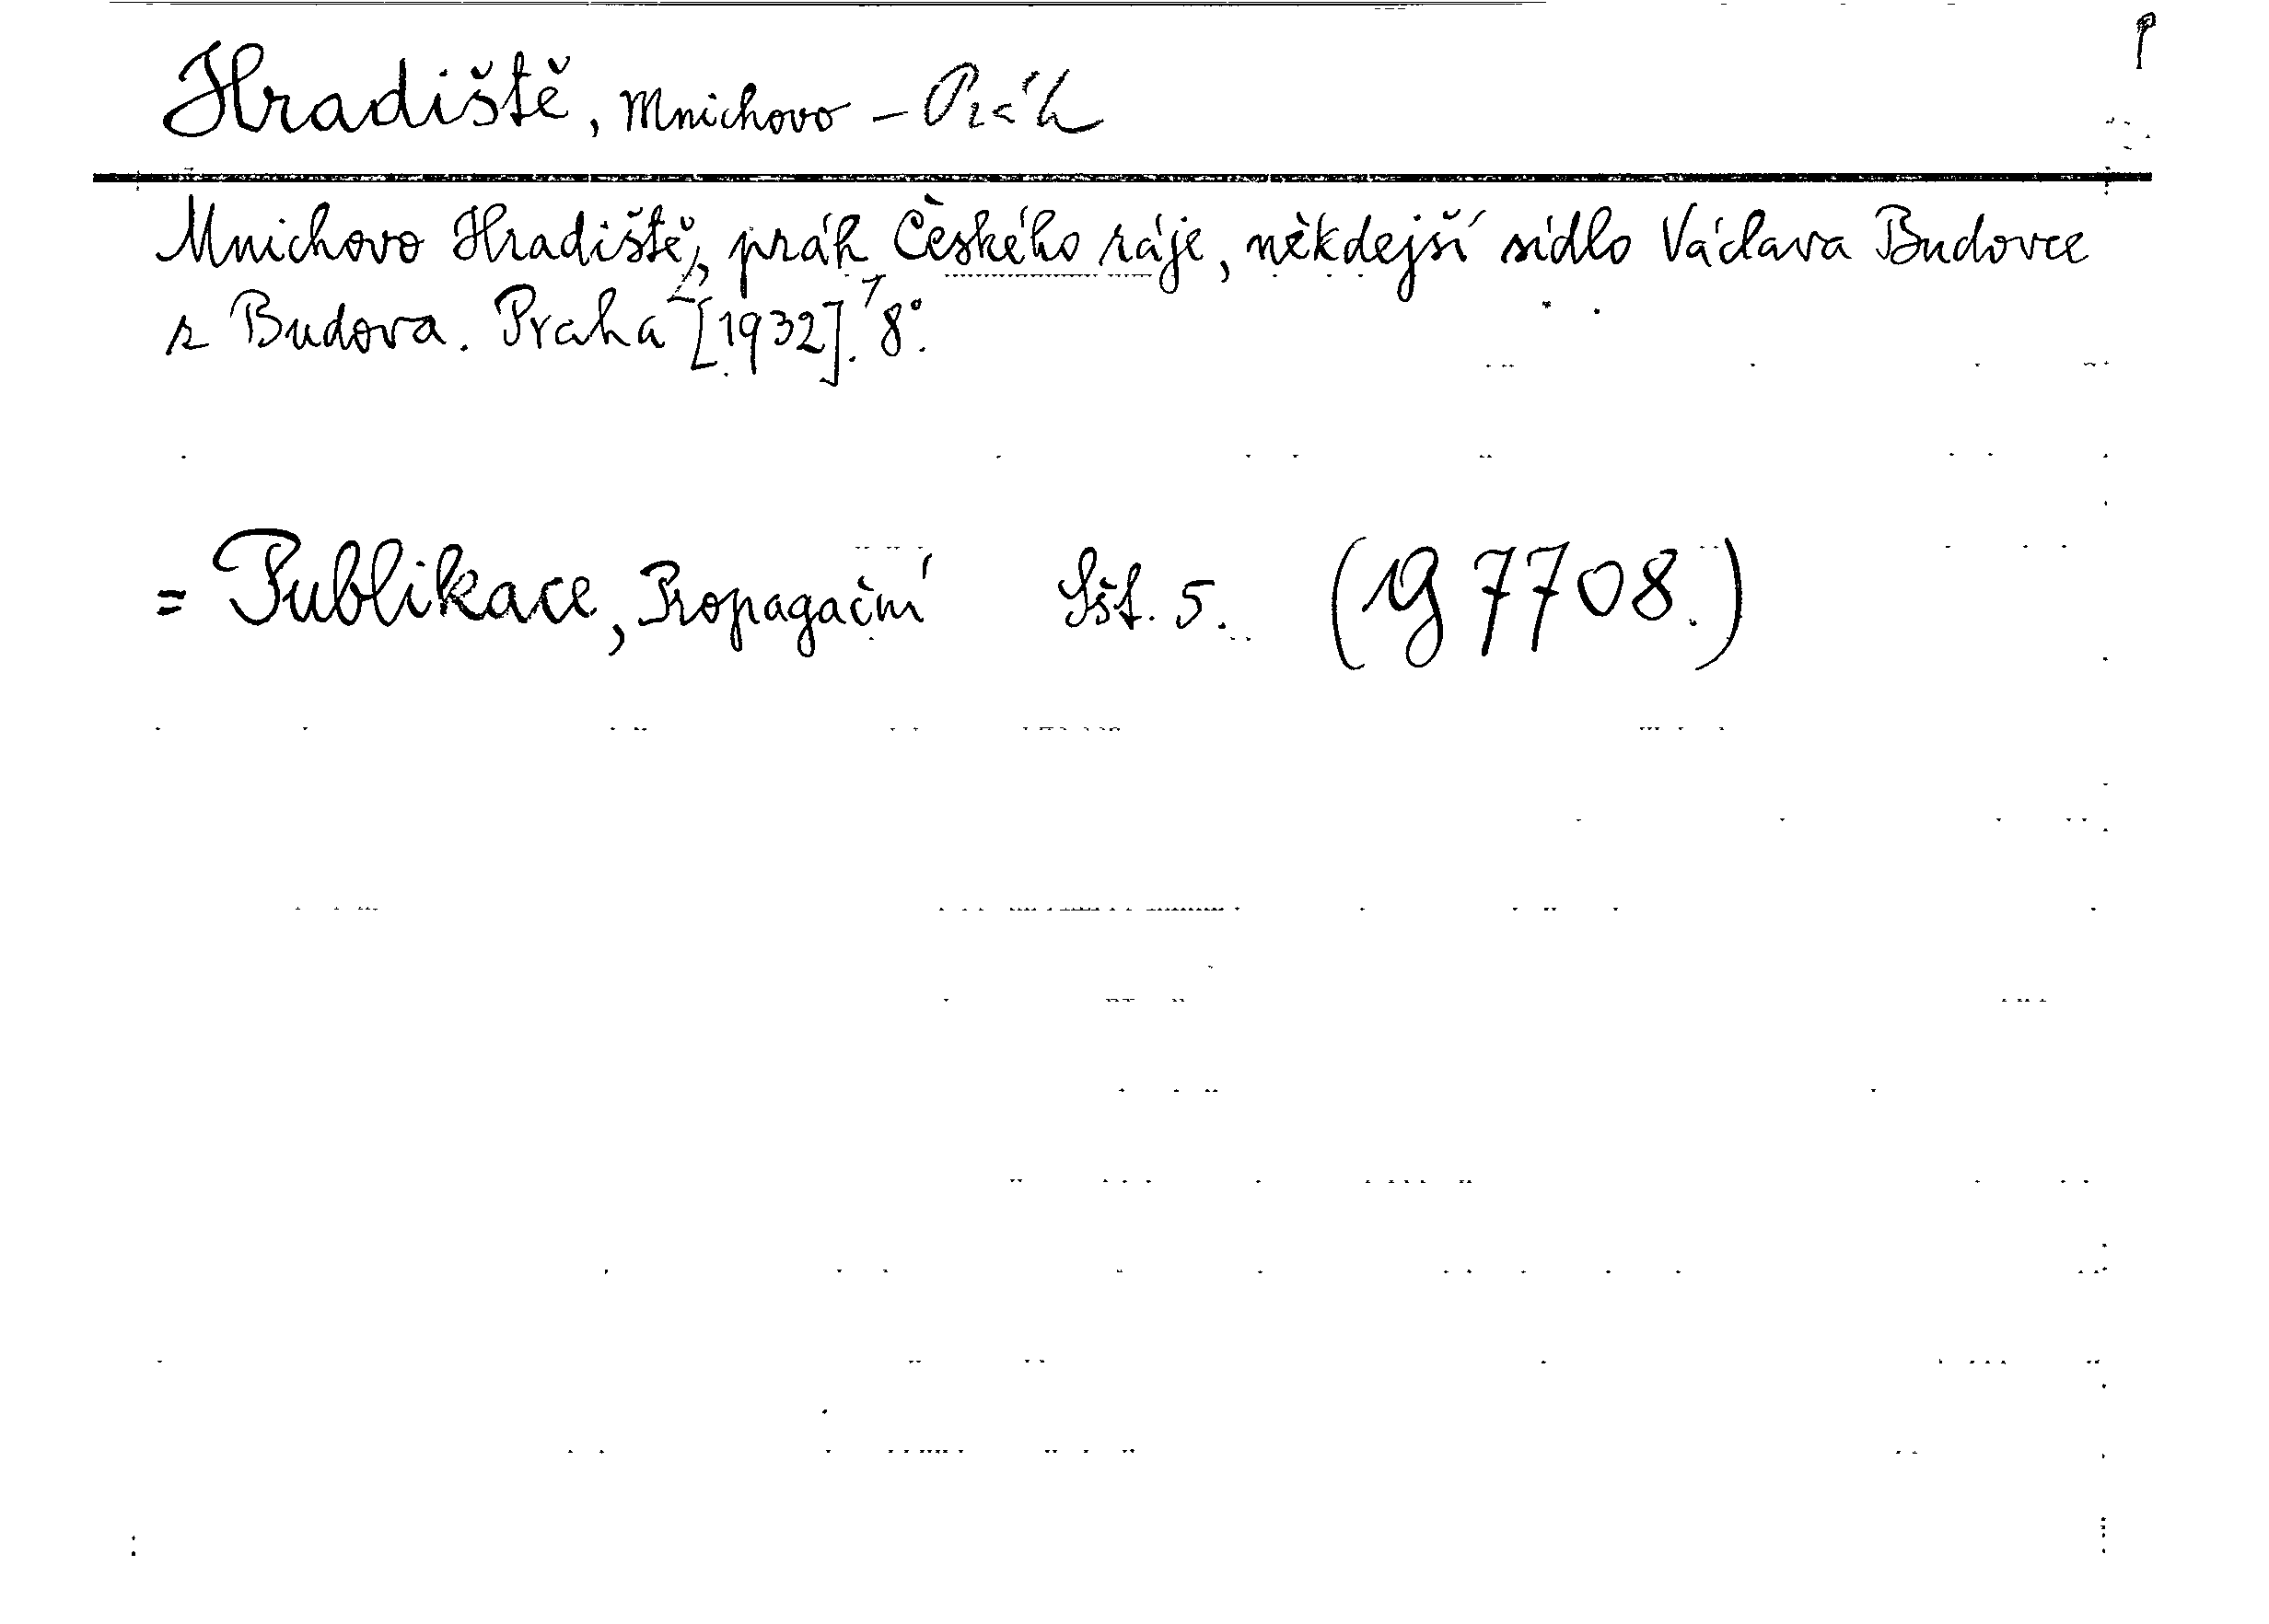 P
Hradiště, Mnichovo – Práh
Mnichovo Hradiště, práh Českého ráje, někdejší sídlo Václava Budovce
z Budova. Praha [1932]. 8°.
= Publikace, Propagační Sšt. 5. (19 7708.)